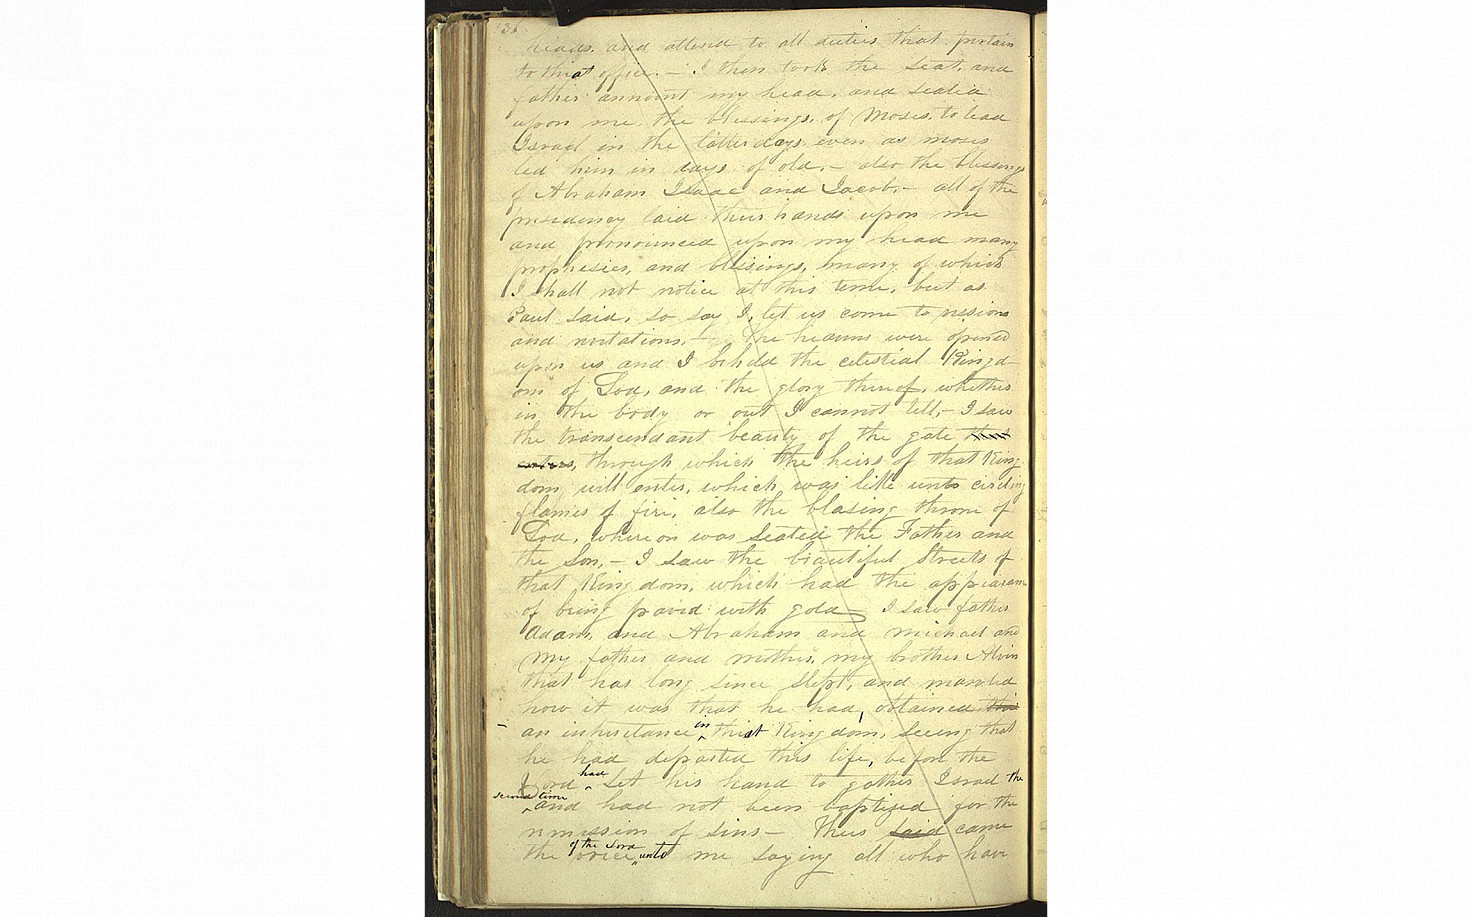 136
heads. and attend to all duties that pertain
to that office.— I then took the seat, and
father annoint my head, and sealed
upon me the blessings, of Moses, to lead
Israel in the latter days, even as moses
led him in days of old,— also the blessings
of Abraham Isaac and Jacob,— all of the
presidency laid their hands upon me
and pronounced upon my head many
prophesies, and blesings, many of which
I shall not notice at this time, but as
Paul said, so say I, let us come to vissions
and revelations,— The heavens were opened
upon us and I beheld the celestial Kingd-
om of God, and the glory thereof, whether
in the body or out I cannot tell,— I saw
the transcendant beauty of the gate that
enters, through which the heirs of that King-
dom will enter, which was like unto circling
flames of fire, also the blasing throne of
God, whereon was seated the Father and
the Son,— I saw the beautiful streets of
that Kingdom, which had the appearance
of being paved with gold— I saw father
Adam, and Abraham and Michael and
my father and mother, my brother Alvin
that has long since slept, and marvled
how it was that he had obtained this
an inheritance in that Kingdom, seeing that
he had departed this life, before the
Lord had set his hand to gather Israel the
second time and had not been baptized for the
remission of sins— Thus said came
the voice of the Lord unto me saying all who have